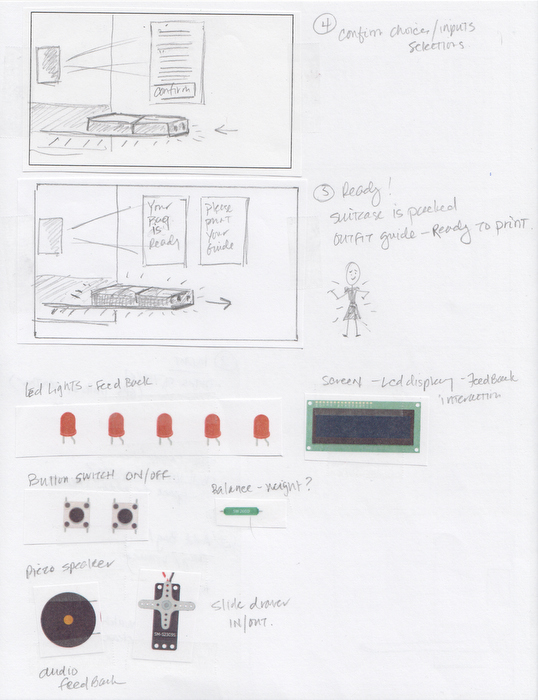 confirm
④ confirm choices/inputs
selections
Your
Bag
IS
Ready
Please
print
Your
Guide
⑤ Ready!
suitcase is packed
OUTFIT guide - Ready to print.
Led Lights - FeedBack
Screen - Lcd display - FeedBack
interaction
Button SWITCH ON/OFF.
Balance - weight?
Piezo speaker
audio
feedBack
Slide drawer
IN/OUT.